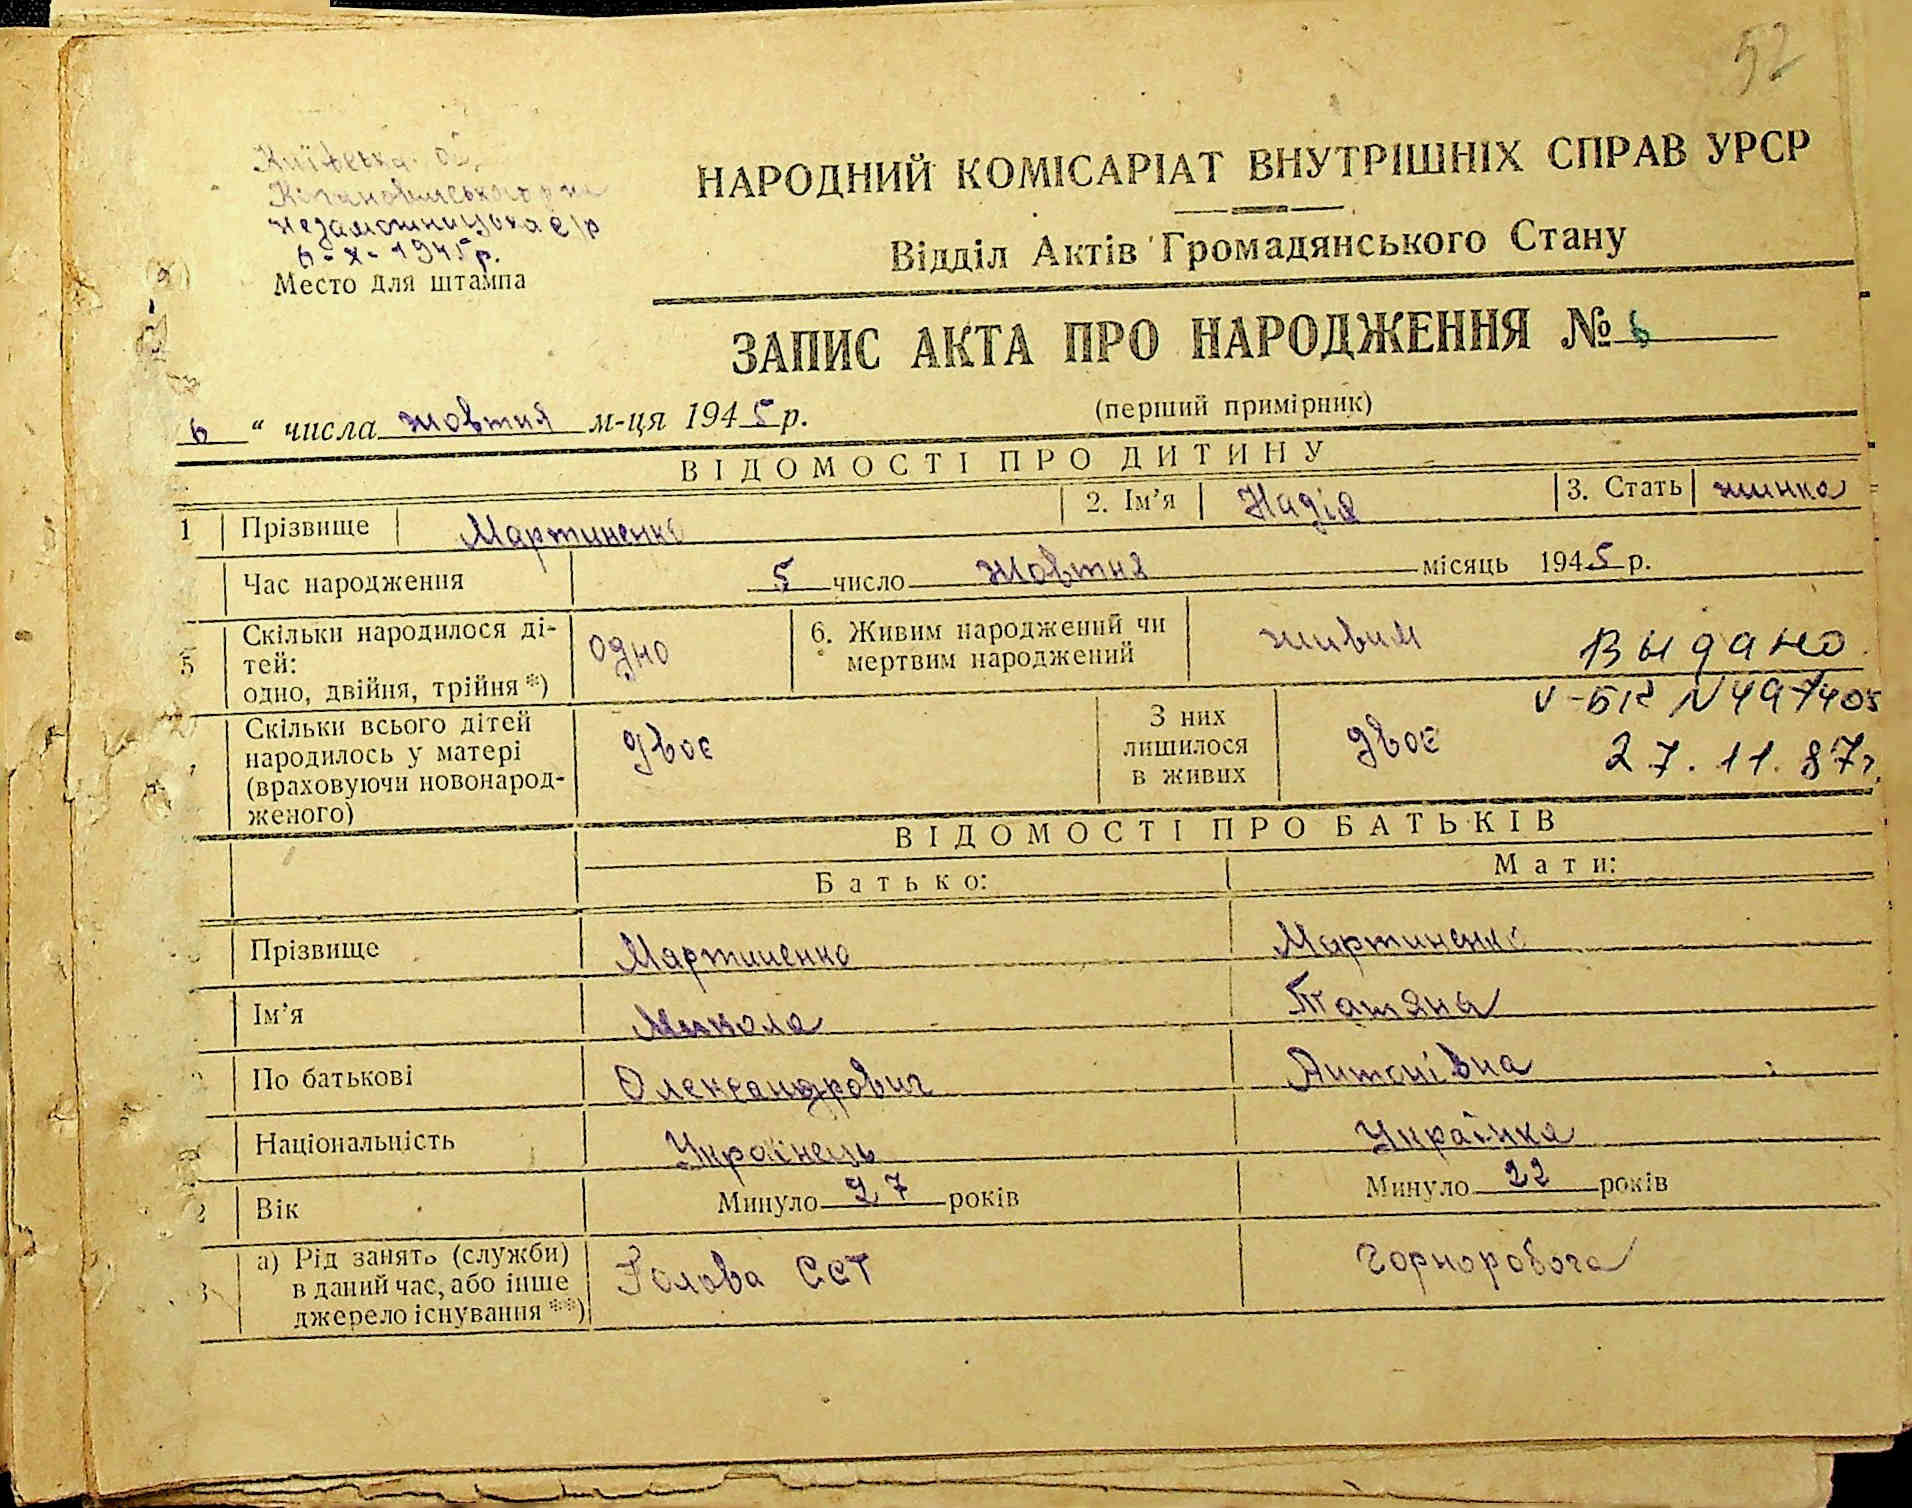 52
Київська об.
Кагановицського р-на
Незаможницька с/р
6-X-1945р.
Место для штампа
НАРОДНИЙ КОМІСАРІАТ ВНУТРІШНІХ СПРАВ УРСР
Відділ Актів Громадянського Стану
ЗАПИС АКТА ПРО НАРОДЖЕННЯ № 6
6 " числа жовтня м-ця 1945 р.
(перший примірник)
ВІДОМОСТІ ПРО ДИТИНУ
1 Прізвище Мартиненко 2. Ім'я Надія 3. Стать жинка
Час народження 5 число жовтня місяць 1945 р.
5 Скільки народилося ді-
тей:
одно, двійня, трійня *)
одно
6. Живим народжений чи
мертвим народжений
живим
Выдано
V-БК N 497405
27.11.87г.
Скільки всього дітей
народилось у матері
(враховуючи новонарод-
женого)
двоє
З них
лишилося
в живих
двоє
ВІДОМОСТІ ПРО БАТЬКІВ
Батько: Мати:
Прізвище Мартиненко Мартиненко
Ім'я Микола Татяна
По батькові Олександрович Антонівна
Національність Українець Українка
2 Вік Минуло 27 років Минуло 22 років
3 а) Рід занять (служби)
в даний час, або інше
джерело існування **)
Голова ССТ
Чорноробоча